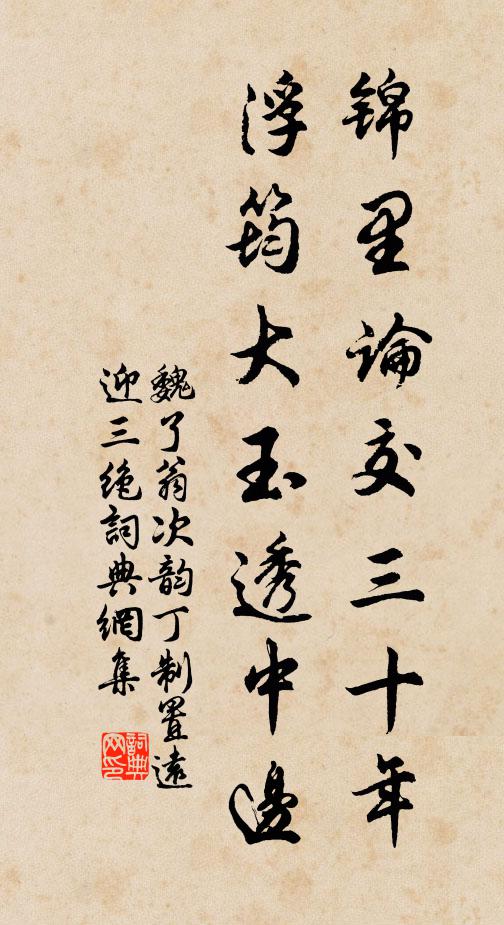 锦里論交三十年
浮筠大玉透中邊
魏了翁次韵丁制置遠
迎三绝詞典網集
詞典网印